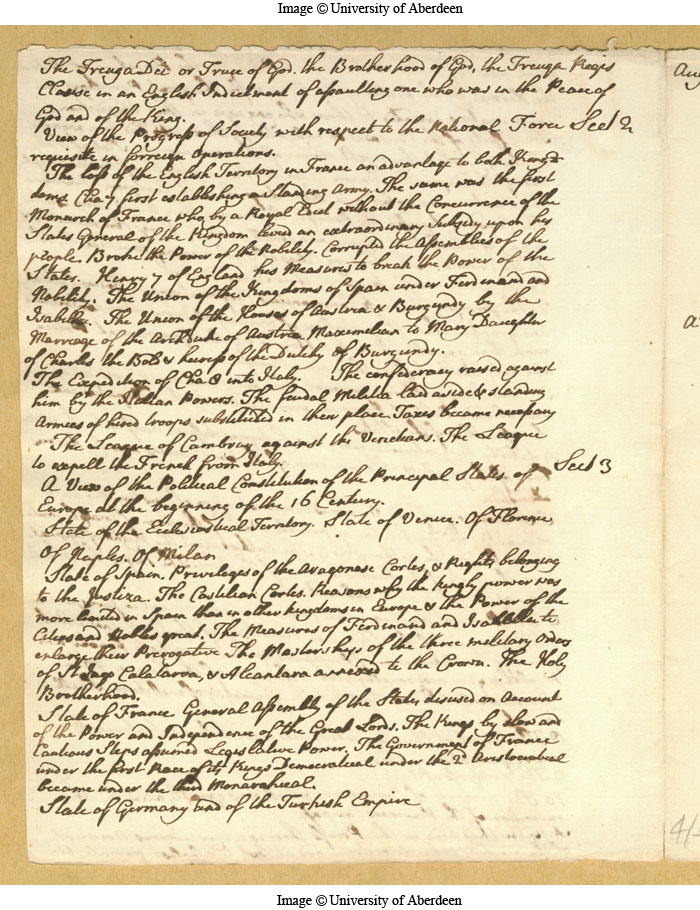 Image © University of Aberdeen
The Treuga Dei or Truce of God. the Brotherhood of God, the Treuga Regis
Clause in an English Indictment of assaulting one who was in the Peace of
God and of the King.
View of the Progress of Society with respect to the National Force Sect 2
requisite in forreign operations.
The loss of the English Territory in France an advantage to both King
doms Cha 7 first establishing a Standing Army. The same was the first
Monarch of France who by a Royal Edict without the Concurrence of the
States General of the Kingdom levied an extraordinary Subsidy upon his
people. Broke the Power of the Nobility. Corrupted the Assemblies of the
States. Henry 7 of England his Measures to break the Power of the
Nobility. The Union of the Kingdoms of Spain under Ferdinand and
Isabella. The Union of the Houses of Austria & Burgundy by the
Marriage of the Archduke of Austria Maximilian to Mary Daughter
of Charles the Bold & heiress of the Dutchy of Burgundy.
The Expedition of Cha 8 into Italy. The confederacy raised against
him by the Italian Powers. The feudal Militia laid aside & standing
Armies of hired troops substituted in their place. Taxes became necessary
The League of Cambray against the Venetians. The League
to expell the French from Italy.
A View of the Political Constitution of the Principal States of Sect 3
Europe at the beginning of the 16 Century.
State of the Ecclesiastical Territory. State of Venice. Of Florence
Of Neples. Of Milan
State of Spain. Privileges of the Aragonese Cortes, & Rights belonging
to the Justiza. The Castilian Cortes. Reasons why the kingly power was
more limited in Spain than in other kingdoms in Europe & the Power of the
Cities and Nobles great. The Measures of Ferdinand and Isabella to
enlarge their Prerogative The Masterships of the three military Orders
of St Jago Calatrava, & Alcantara annexed to the Crown. The Holy
Brotherhood.
State of France General Assembly of the States disused on Account
of the Power and Independence of the Great Lords. The Kings by slow and
Cautious Steps assumed Legislative Power. The Government of France
under the first Race of its Kings Democratical under the 2d Aristocratical
became under the third Monarchical.
State of Germany and of the Turkish Empire
4/
Image © University of Aberdeen